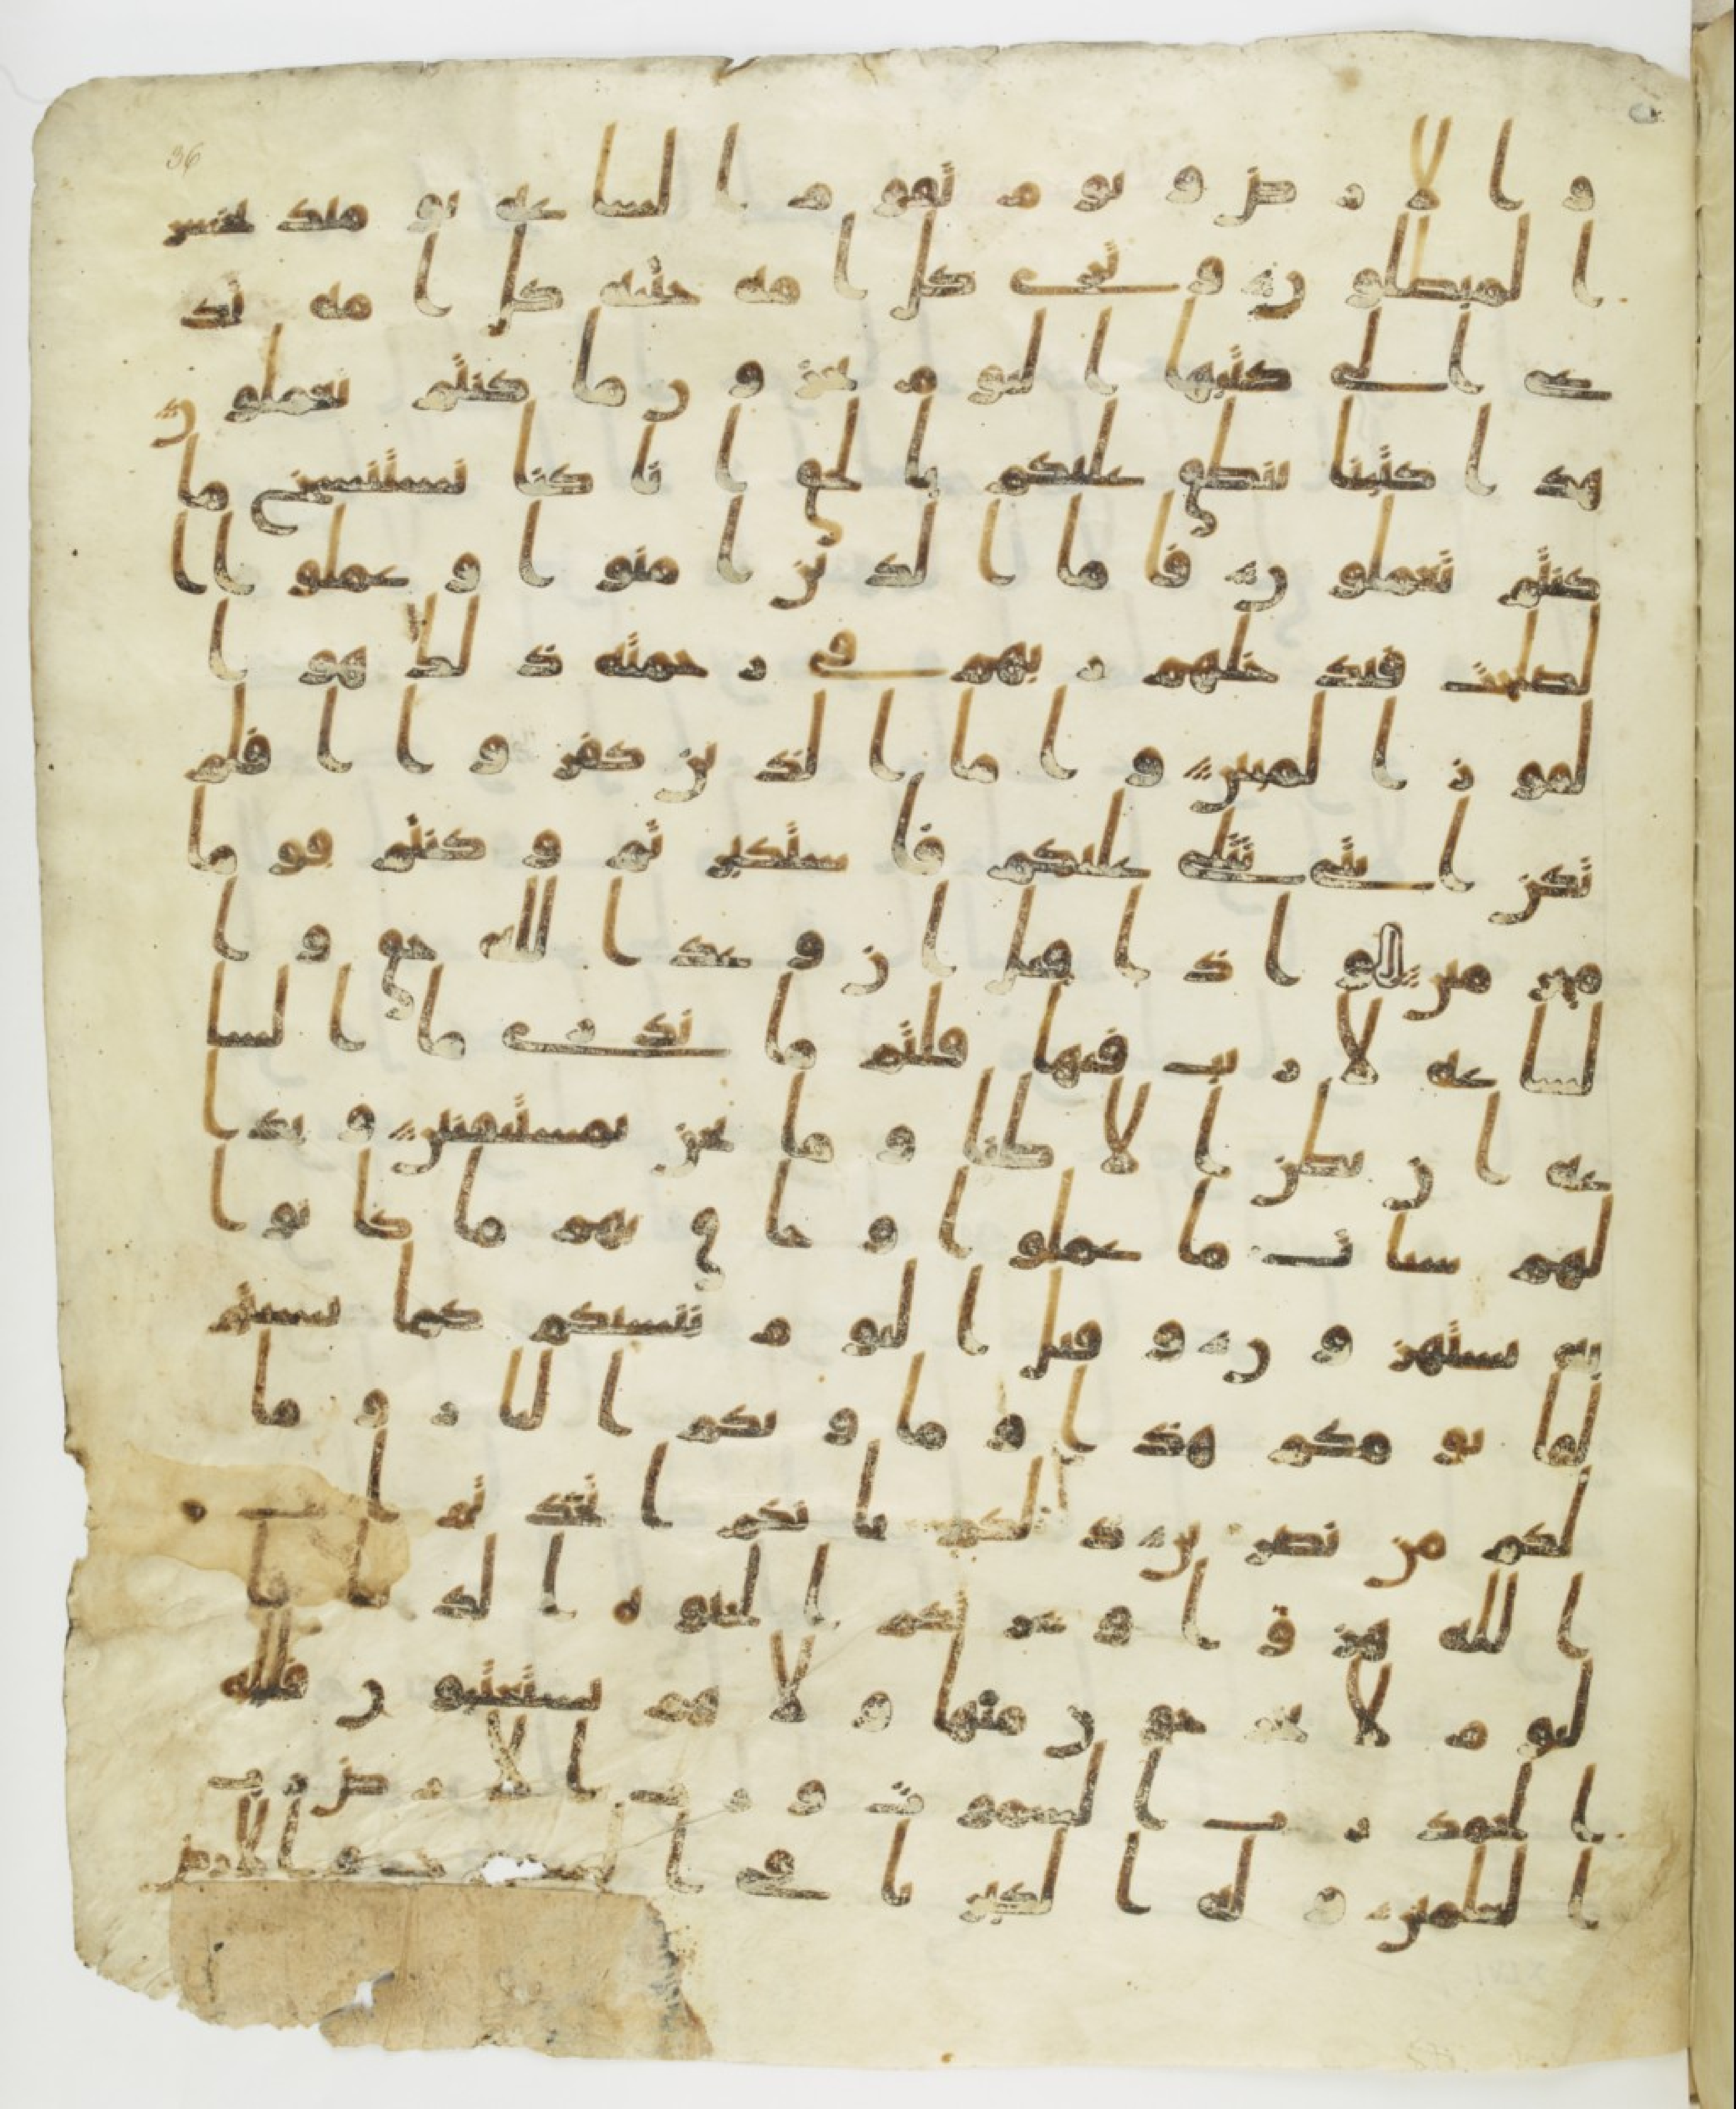 36
والارض ويوم تقوم الساعه يومئذ يخسر
المبطلون وترى كل امه جثيه كل امه تد
عى الى كتبها اليوم تجزون ما كنتم تعملون
هذا كتبنا ينطق عليكم بالحق انا كنا نستنسخ ما
كنتم تعملون فاما الذين امنوا وعملوا ا
لصلحت فيدخلهم ربهم فى رحمته ذلك هو ا
لفوز المبين واما الذين كفروا افلم
تكن ايتى تتلى عليكم فاستكبرتم وكنتم قوما
مجرمين واذا قيل ان وعد الله حق وا
لساعه لا ريب فيها قلتم ما ندرى ما السا
عه ان نظن الا ظنا وما نحن بمستيقنين وبدا
لهم سيات ما عملوا وحاق بهم ما كانوا
به يستهزون وقيل اليوم ننسيكم كما نسيتم
لقا يومكم هذا وماويكم النار وما
لكم من نصرين ذلكم بانكم اتخذتم ايت
الله هزوا وغرتكم الحيوه الدنيا فا
ليوم لا يخرجون منها ولا هم يستعتبون فلله
الحمد رب السموت ورب الارض رب
العلمين وله الكبريا فى السموت والارض